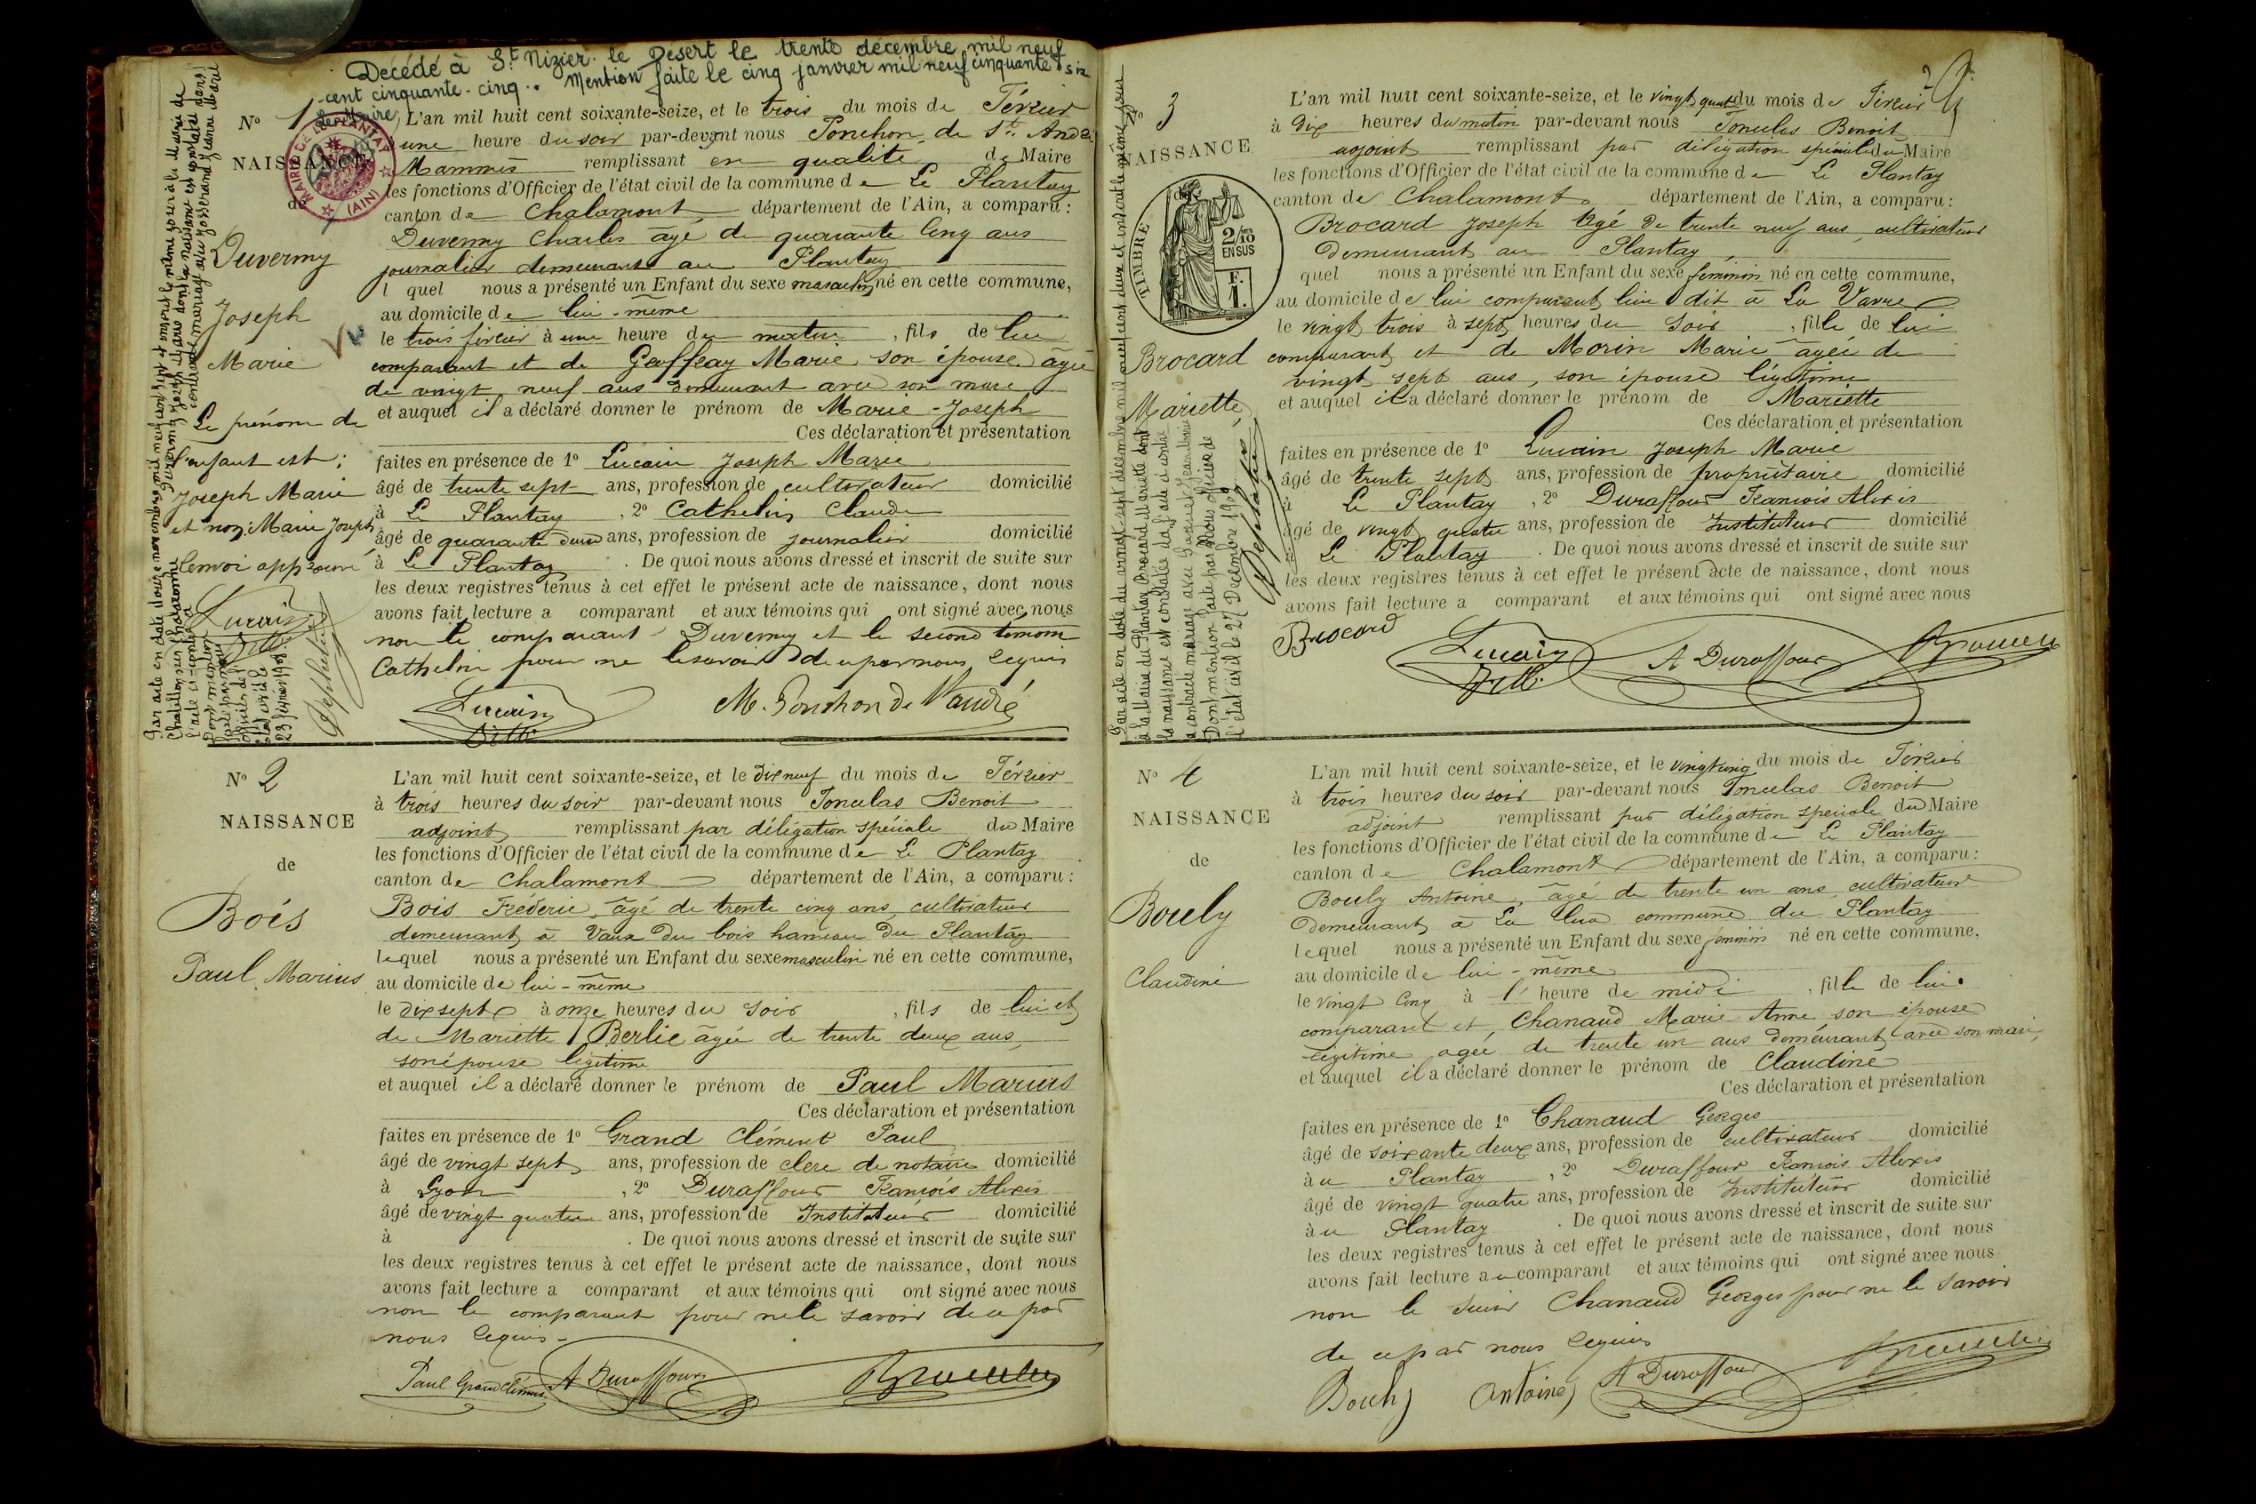 Decédé à St Nizier le Desert le trente décembre mil neuf
cent cinquante-cinq. Mention faite le cinq janvier mil neuf cinquante six
Le Maire,
MAIRIE DE LE PLANTAY (AIN)
No 1
NAISSANCE
de
Duverny
Joseph
Marie
Le prénom de
l'enfant est:
Joseph Marie
et non: Marie Joseph
Renvoi approuvé
Lucain
L'an mil huit cent soixante-seize, et le trois du mois de Février
à une heure du soir par-devant nous Ponchon de St André
Mammès remplissant en qualité de Maire
les fonctions d'Officier de l'état civil de la commune de Le Plantay
canton de Chalamont département de l'Ain, a comparu:
Duverny Charles âgé de quarante cinq ans
journalier demeurant au Plantay
lequel nous a présenté un Enfant du sexe masculin né en cette commune,
au domicile de lui-même
le trois février à une heure du matin, fils de lui
comparant et de Geoffray Marie son épouse âgée
de vingt neuf ans demeurant avec son mari
et auquel il a déclaré donner le prénom de Marie-Joseph
Ces déclaration et présentation
faites en présence de 1o Lucain Joseph Marie
âgé de trente sept ans, profession de cultivateur domicilié
à Le Plantay, 2o Cathelin Claude
âgé de quarante deux ans, profession de journalier domicilié
à Le Plantay. De quoi nous avons dressé et inscrit de suite sur
les deux registres tenus à cet effet le présent acte de naissance, dont nous
avons fait lecture a comparant et aux témoins qui ont signé avec nous
non le comparant Duverny et le second témoin
Cathelin pour ne le savoir de ce par nous requis
Lucain
M. Ponchon de St André
Par acte en date du douze novembre mil neuf cent sept et transcrit le même jour à la Mairie de
Chatillon sur Chalaronne Duverny Joseph Marie dont la naissance est constatée dans
l'acte ci-contre a contracté mariage avec Josserand Jeanne Marie
Dont mention
faite par nous
officier de l'
état civil le
23 février 1908
No 2
NAISSANCE
de
Bois
Paul Marius
L'an mil huit cent soixante-seize, et le dix neuf du mois de Février
à trois heures du soir par-devant nous Ponculas Benoit
adjoint remplissant par délégation spéciale du Maire
les fonctions d'Officier de l'état civil de la commune de Le Plantay
canton de Chalamont département de l'Ain, a comparu:
Bois Frederic, âgé de trente cinq ans, cultivateur
demeurant à Vaux du bois hameau du Plantay
lequel nous a présenté un Enfant du sexe masculin né en cette commune,
au domicile de lui-même
le dix sept à onze heures du soir, fils de lui et
de Mariette Berlie âgée de trente deux ans,
son épouse légitime
et auquel il a déclaré donner le prénom de Paul Marius
Ces déclaration et présentation
faites en présence de 1o Grand Clément Paul
âgé de vingt sept ans, profession de clerc de notaire domicilié
à Lyon, 2o Duraffour François Alexis
âgé de vingt quatre ans, profession de Instituteur domicilié
à . De quoi nous avons dressé et inscrit de suite sur
les deux registres tenus à cet effet le présent acte de naissance, dont nous
avons fait lecture a comparant et aux témoins qui ont signé avec nous
non le comparant pour ne le savoir de ce par
nous requis.
Paul Grand Clément A Duraffour
No 3
NAISSANCE
TIMBRE
2/10 EN SUS
F. 1.
Brocard
Mariette
L'an mil huit cent soixante-seize, et le vingt quatre du mois de Février
à dix heures du matin par-devant nous Ponculas Benoit
adjoint remplissant par délégation spéciale du Maire
les fonctions d'Officier de l'état civil de la commune de Le Plantay
canton de Chalamont département de l'Ain, a comparu:
Brocard Joseph âgé de trente neuf ans, cultivateur
demeurant au Plantay,
quel nous a présenté un Enfant du sexe féminin né en cette commune,
au domicile de lui comparant, lieu dit à La Vavre
le vingt trois à sept heures du soir, fille de lui
comparant et de Morin Marie âgée de
vingt sept ans, son épouse légitime
et auquel il a déclaré donner le prénom de Mariette
Ces déclaration et présentation
faites en présence de 1o Lucain Joseph Marie
âgé de trente sept ans, profession de propriétaire domicilié
à Le Plantay, 2o Duraffour François Alexis
âgé de vingt quatre ans, profession de Instituteur domicilié
à Le Plantay. De quoi nous avons dressé et inscrit de suite sur
les deux registres tenus à cet effet le présent acte de naissance, dont nous
avons fait lecture a comparant et aux témoins qui ont signé avec nous
Brocard
Lucain
A Duraffour
à la Mairie du Plantay Brocard Mariette dont
la naissance est constatée dans l'acte ci-contre
a contracté mariage avec
Dont mention faite par Nous officier de
l'état civil le 27 Décembre 1902
No 4
NAISSANCE
de
Bouly
Claudine
L'an mil huit cent soixante-seize, et le vingt cinq du mois de Février
à trois heures du soir par-devant nous Ponculas Benoit
adjoint remplissant par délégation spéciale du Maire
les fonctions d'Officier de l'état civil de la commune de Le Plantay
canton de Chalamont département de l'Ain, a comparu:
Bouly Antoine, âgé de trente un ans cultivateur
demeurant à La commune du Plantay
lequel nous a présenté un Enfant du sexe féminin né en cette commune,
au domicile de lui-même
le vingt cinq à l' heure de midi, fille de lui
comparant et, Chanaud Marie Anne son épouse
légitime agée de trente un ans demeurant avec son mari,
et auquel il a déclaré donner le prénom de Claudine
Ces déclaration et présentation
faites en présence de 1o Chanaud Georges
âgé de soixante deux ans, profession de cultivateur domicilié
à u Plantay, 2o Duraffour François Alexis
âgé de vingt quatre ans, profession de Instituteur domicilié
à u Plantay. De quoi nous avons dressé et inscrit de suite sur
les deux registres tenus à cet effet le présent acte de naissance, dont nous
avons fait lecture au comparant et aux témoins qui ont signé avec nous
non le Chanaud Georges pour ne le savoir
de ce par nous requis
Bouly Antoine A Duraffour